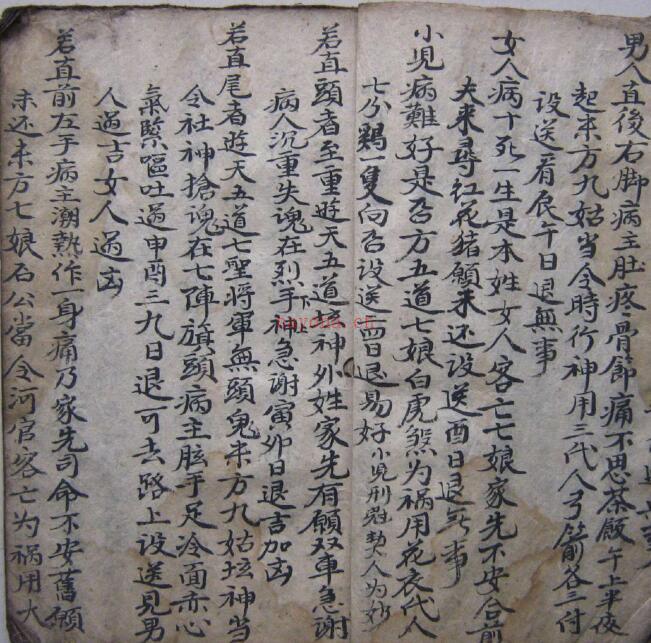 男人直後右脚病主肚疼骨節痛不思茶飯午上半夜
起来方九姑当令時行神用三代人弓箭各三付
設送看辰午日退無事
女人病十死一生是本姓女人客亡七娘家先不安合前
夫来尋红花猪願未还設送酉日退无事
小児病難好是西方五道七娘白虎煞为祸用花衣代人
七分鷄一隻向西設送酉日退易好小児刑尅契人为妙
若直頭者至重遊天五道神外姓家先有願双車急謝
病人沉重失魂在神急謝寅卯日退吉加凶
若直尾者遊天五道七聖将軍無頭鬼東方九姑坛神当
令社神搶魂在七陣旗頭病主眩手足冷面赤心
氣緊嘔吐過申酉三九日退可去路上設送見男
人過吉女人過凶
若直前左手病主潮熱作一身痛乃家先司命不安舊願
未还東方七娘石公当令河官客亡为禍用大